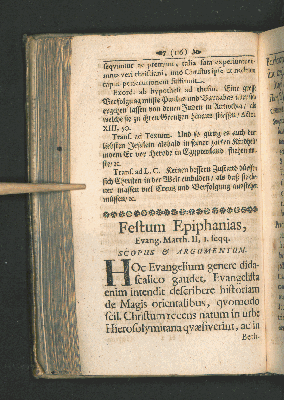 (116)
sequuntur ac premunt, talia fata experiuntur
omnes veri christiani, uno Christus ipse ac
persecutionem sustinuit.
Exord. ab hypothesi ad thesin. Eine grosse
Verfolgung muste Paulus und Barnabas über sich
ergehen lassen von denen Juden in Antiochia/ als
welche sie zu ihren Grentzen hinaus stiessen/ Actor.
XIII. 50.
Transf. ad Textum. Und so gieng es auch dem
liebsten Jesulein alsbald in seiner zarten Kindheit/
indem Er vor Herode in Egyptenland fliehen mu-
ste/ &c.
Transf. ad L. C. Keinen bessern Zustand dürffen
sich Christen in der Welt einbilden/ als daß sie
müssen viel Creutz und Verfolgung ausstehen
müssen/ &c.
Festum Epiphanias,
Evang. Matth. II, 1. seqq.
SCOPUS & ARGUMENTUM.
HOc Evangelium genere dida-
scalico gaudet. Evangelista
enim intendit describere historiam
de Magis orientalibus, quomodo
scil. Christum recens natum in urbe
Hierosolymitana quæsiverint, ac in
Beth-